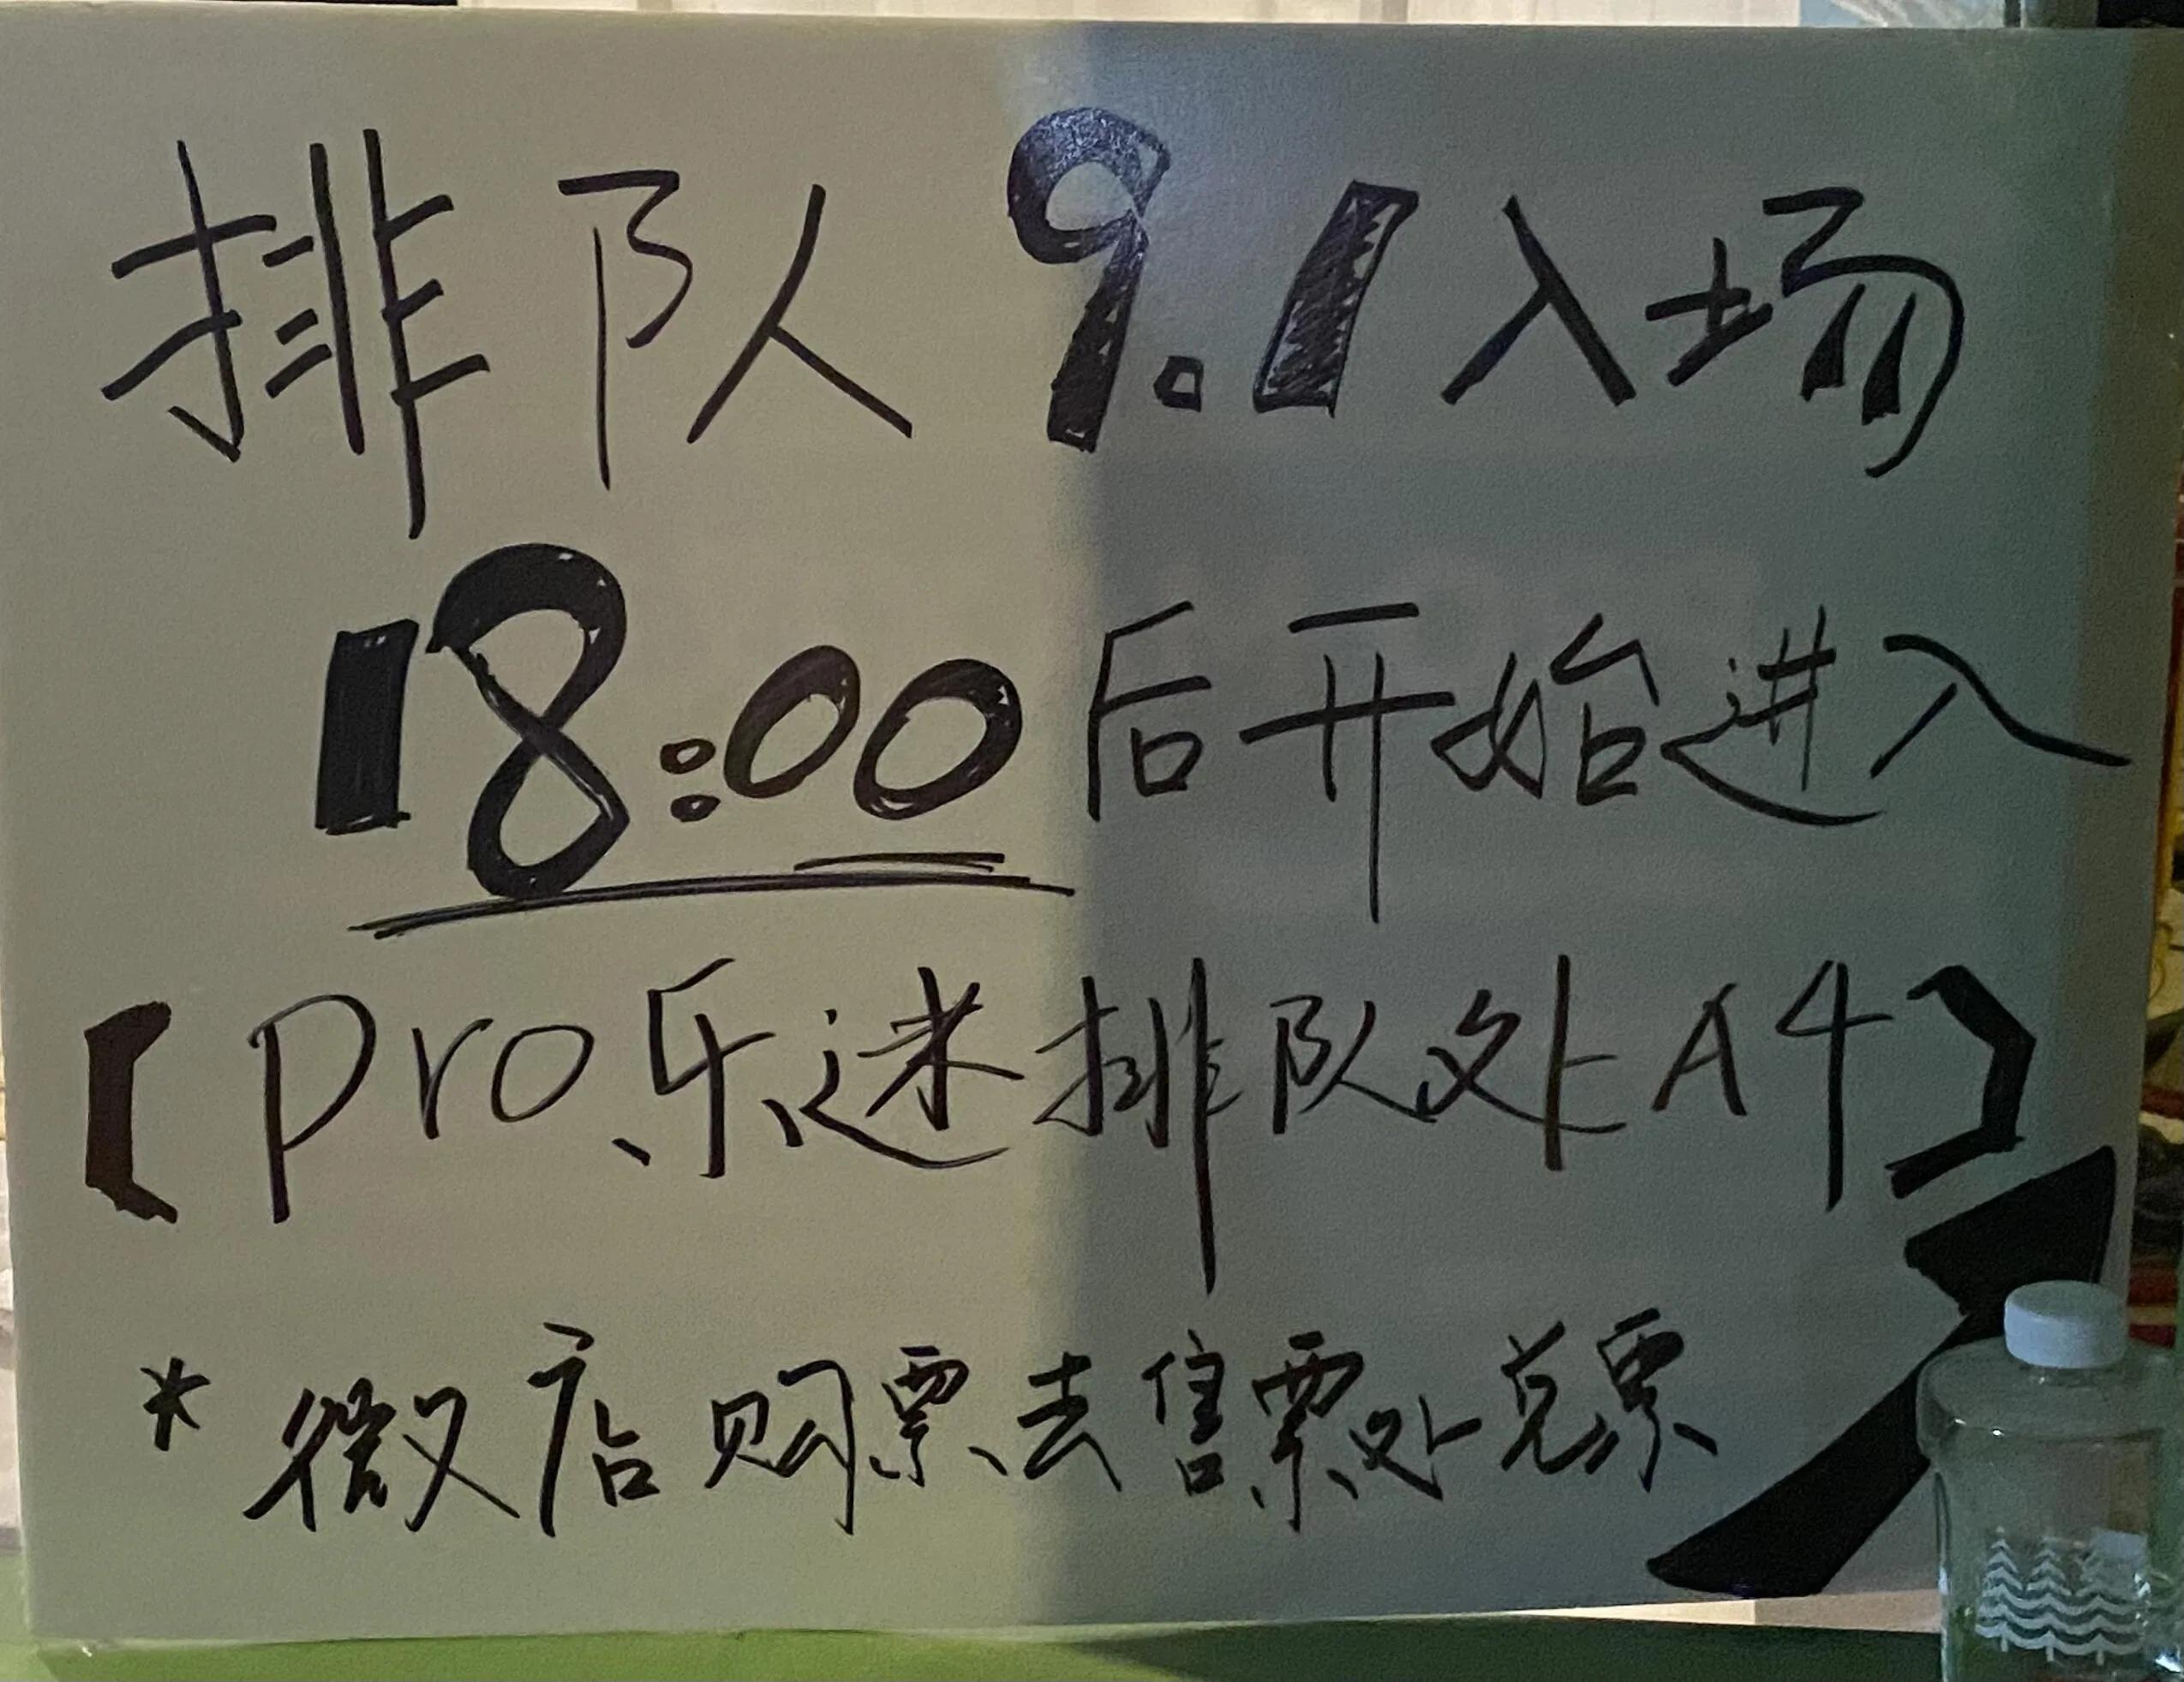 排队9.1入场
18:00后开始进入
【Pro乐迷排队处A4】
*微店购票去售票处兑票